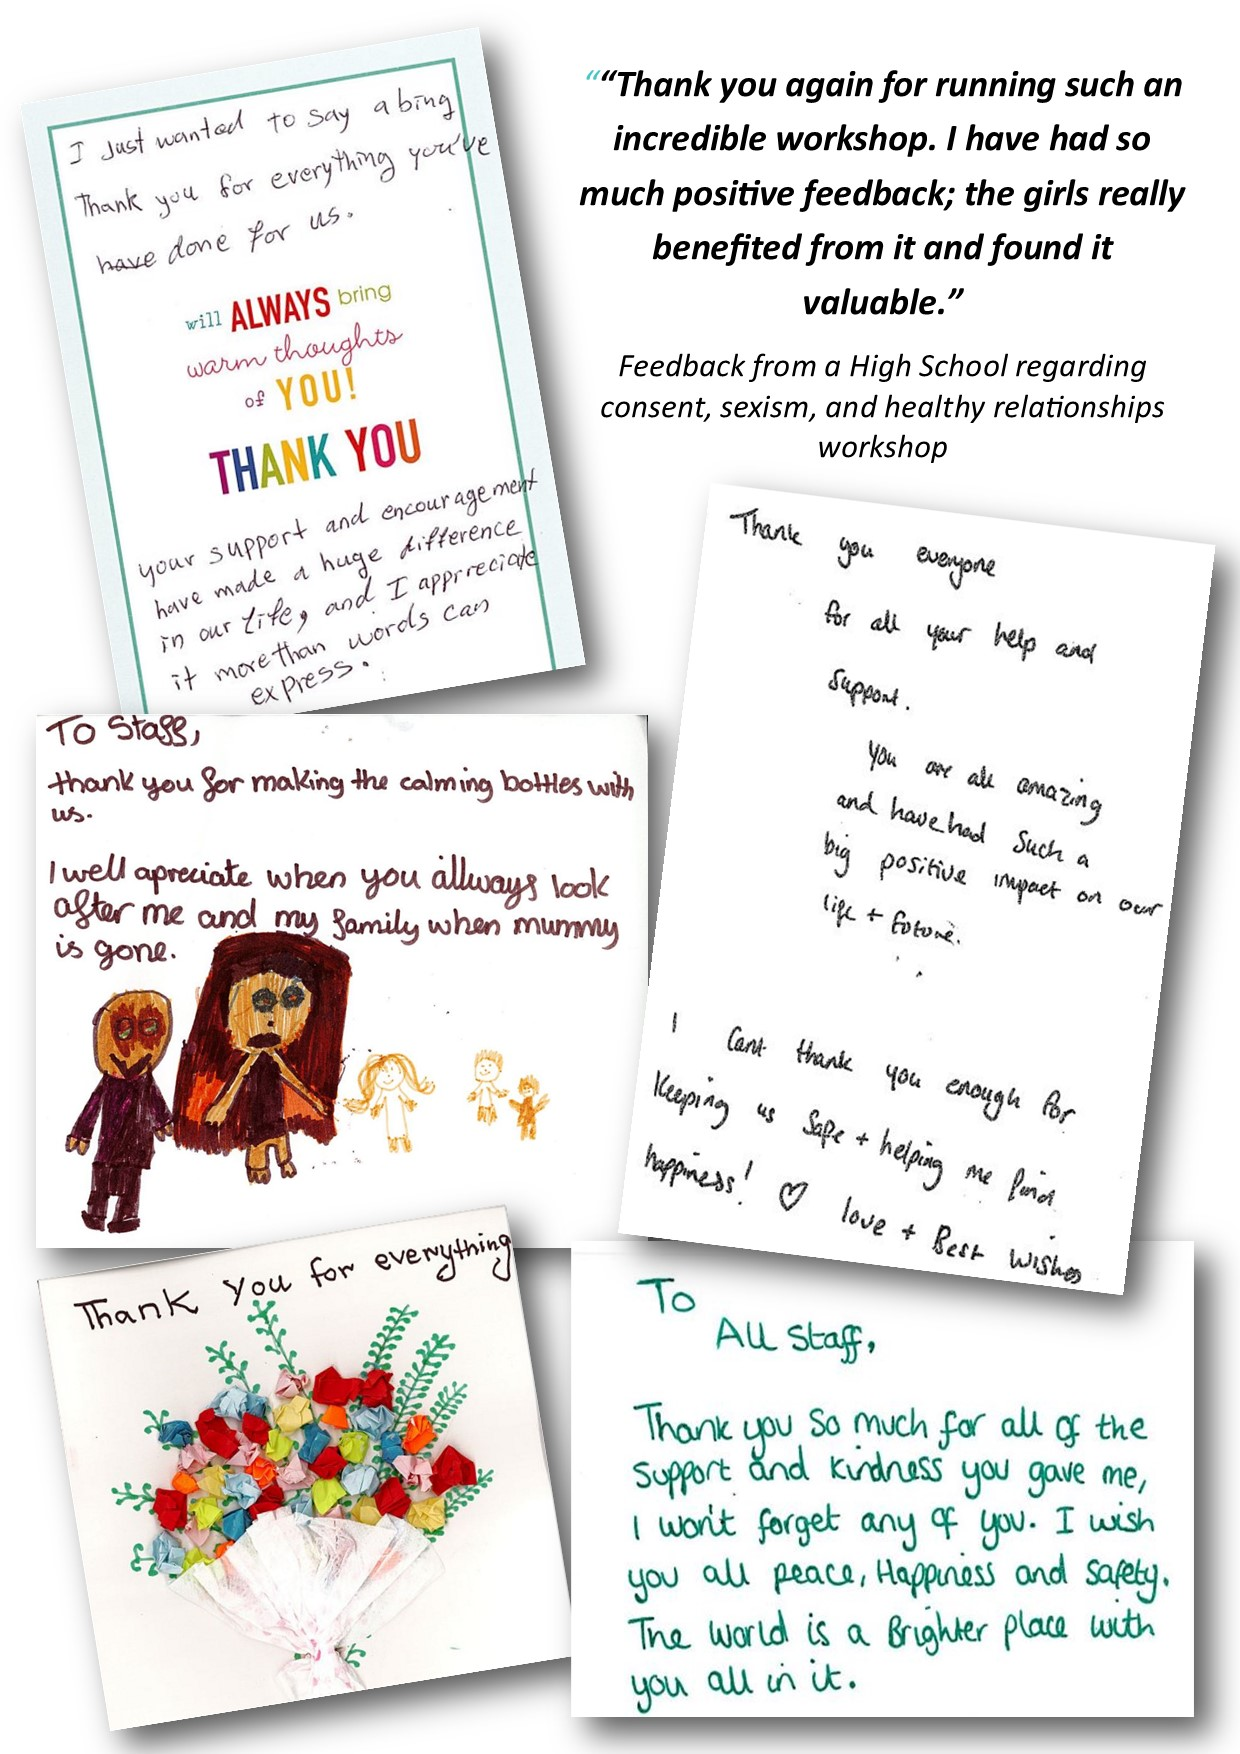 I Just wanted to say a bing
Thank you for everything you've
have done for us.
will ALWAYS bring
warm thoughts
of YOU!
THANK YOU
your support and encouragement
have made a huge difference
in our life, and I apprreciate
it more than words can
express.
““Thank you again for running such an
incredible workshop. I have had so
much positive feedback; the girls really
benefited from it and found it
valuable.”
Feedback from a High School regarding
consent, sexism, and healthy relationships
workshop
Thank you everyone
for all your help and
support.
You are all amazing
and have had such a
big positive impact on our
life + future.
I Cant thank you enough for
Keeping us safe + helping me find
happiness! ♡ love + Best wishes
To Staff,
thank you for making the calming bottles with
us.
I well apreciate when you allways look
after me and my family when mummy
is gone.
Thank You for everything
To
All Staff,
Thank you so much for all of the
support and kindness you gave me,
I won't forget any of you. I wish
you all peace, Happiness and Safety.
The world is a Brighter place with
you all in it.